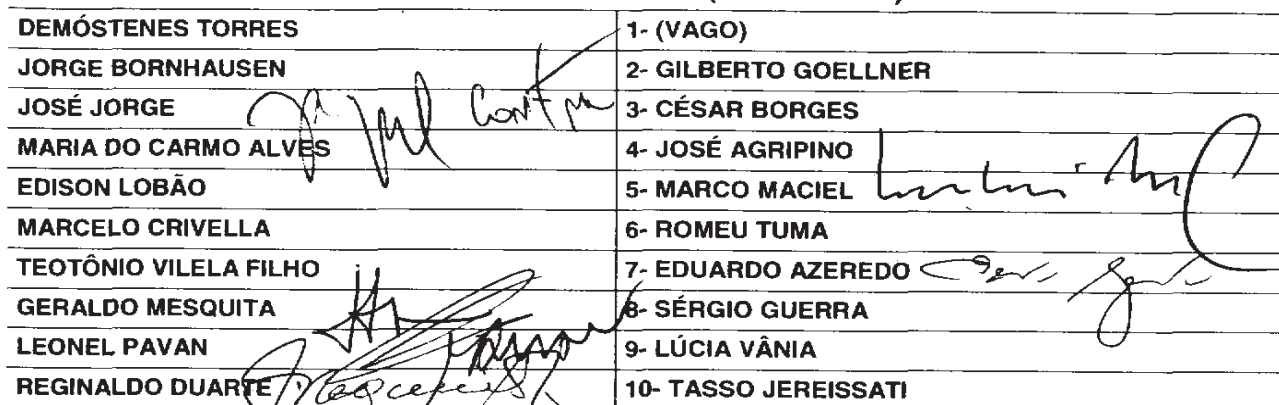 DEMÓSTENES TORRES 1- (VAGO)
JORGE BORNHAUSEN 2- GILBERTO GOELLNER
JOSÉ JORGE 3- CÉSAR BORGES
MARIA DO CARMO ALVES 4- JOSÉ AGRIPINO
EDISON LOBÃO 5- MARCO MACIEL
MARCELO CRIVELLA 6- ROMEU TUMA
TEOTÔNIO VILELA FILHO 7- EDUARDO AZEREDO
GERALDO MESQUITA 8- SÉRGIO GUERRA
LEONEL PAVAN 9- LÚCIA VÂNIA
REGINALDO DUARTE 10- TASSO JEREISSATI